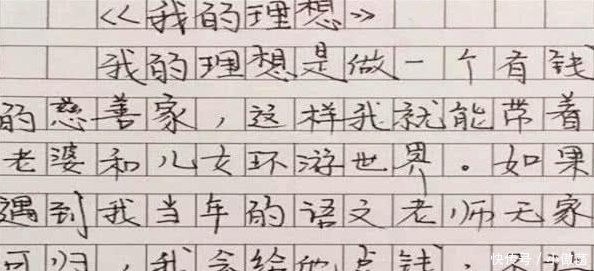 <<我的理想>>
我的理想是做一个有钱
的慈善家，这样我就能带着
老婆和儿女环游世界。如果
遇到我当年的语文老师无家
可归，我会给他点钱，
快传号／